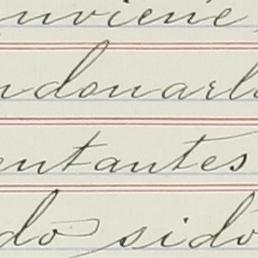 nviene,
ndonarl
entantes
do sido